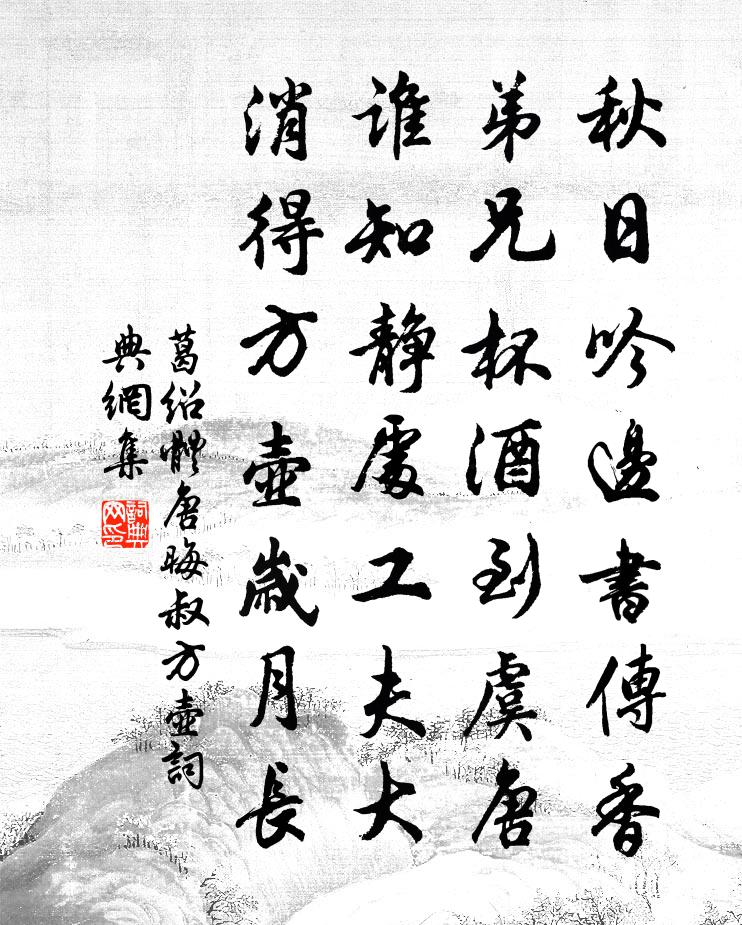 秋日吟邊書傳香
弟兄杯酒到虞唐
誰知靜處工夫大
消得方壺歲月長
葛紹體唐晦叔方壺詞
典網集
詞典網印